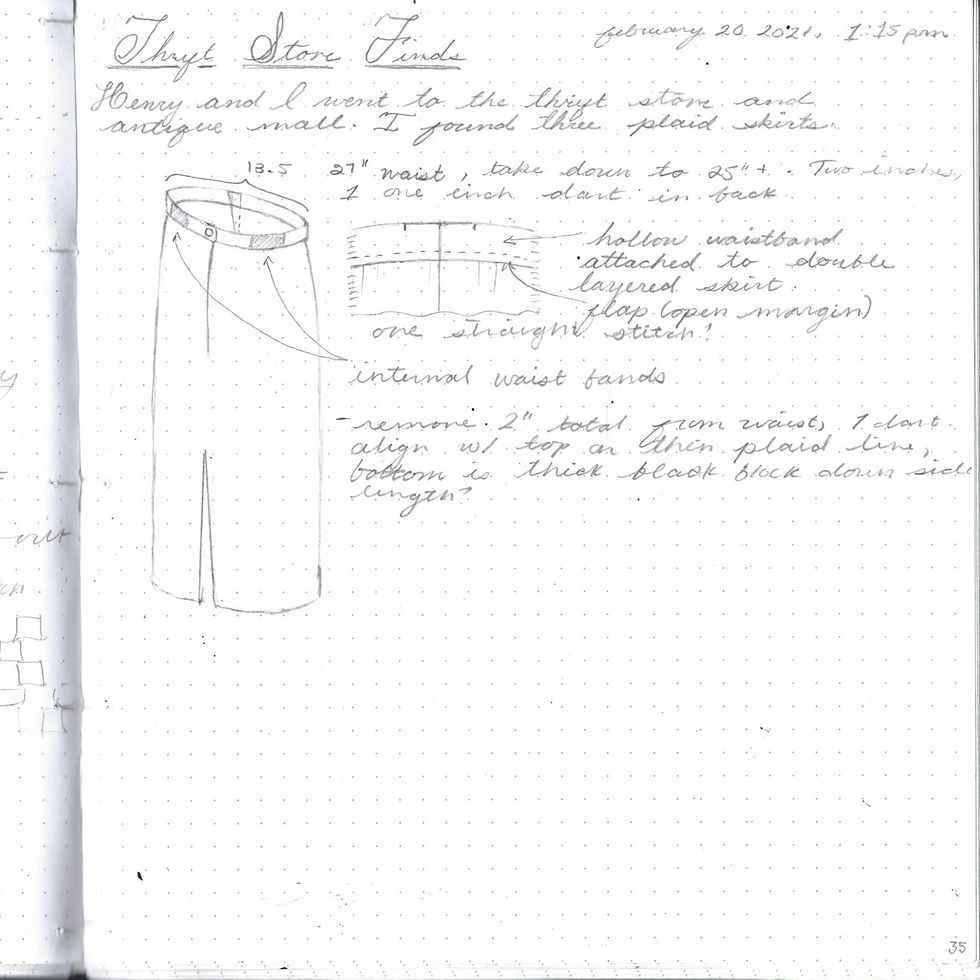 Thryft Store Finds
february 20. 2021, 1:15 pm
Henry and I went to the thryft store and
antique mall. I found three plaid skirts.
13.5
27" waist, take down to 25"+. Two inches,
1 one inch dart in back
hollow waistband
attached to double
layered skirt.
flap (open margin)
one straight stitch!
internal waist bands
- remove 2" total from waist, 1 dart.
align w/ top on thin plaid line,
bottom is thick black block down side
length?
y
out
35